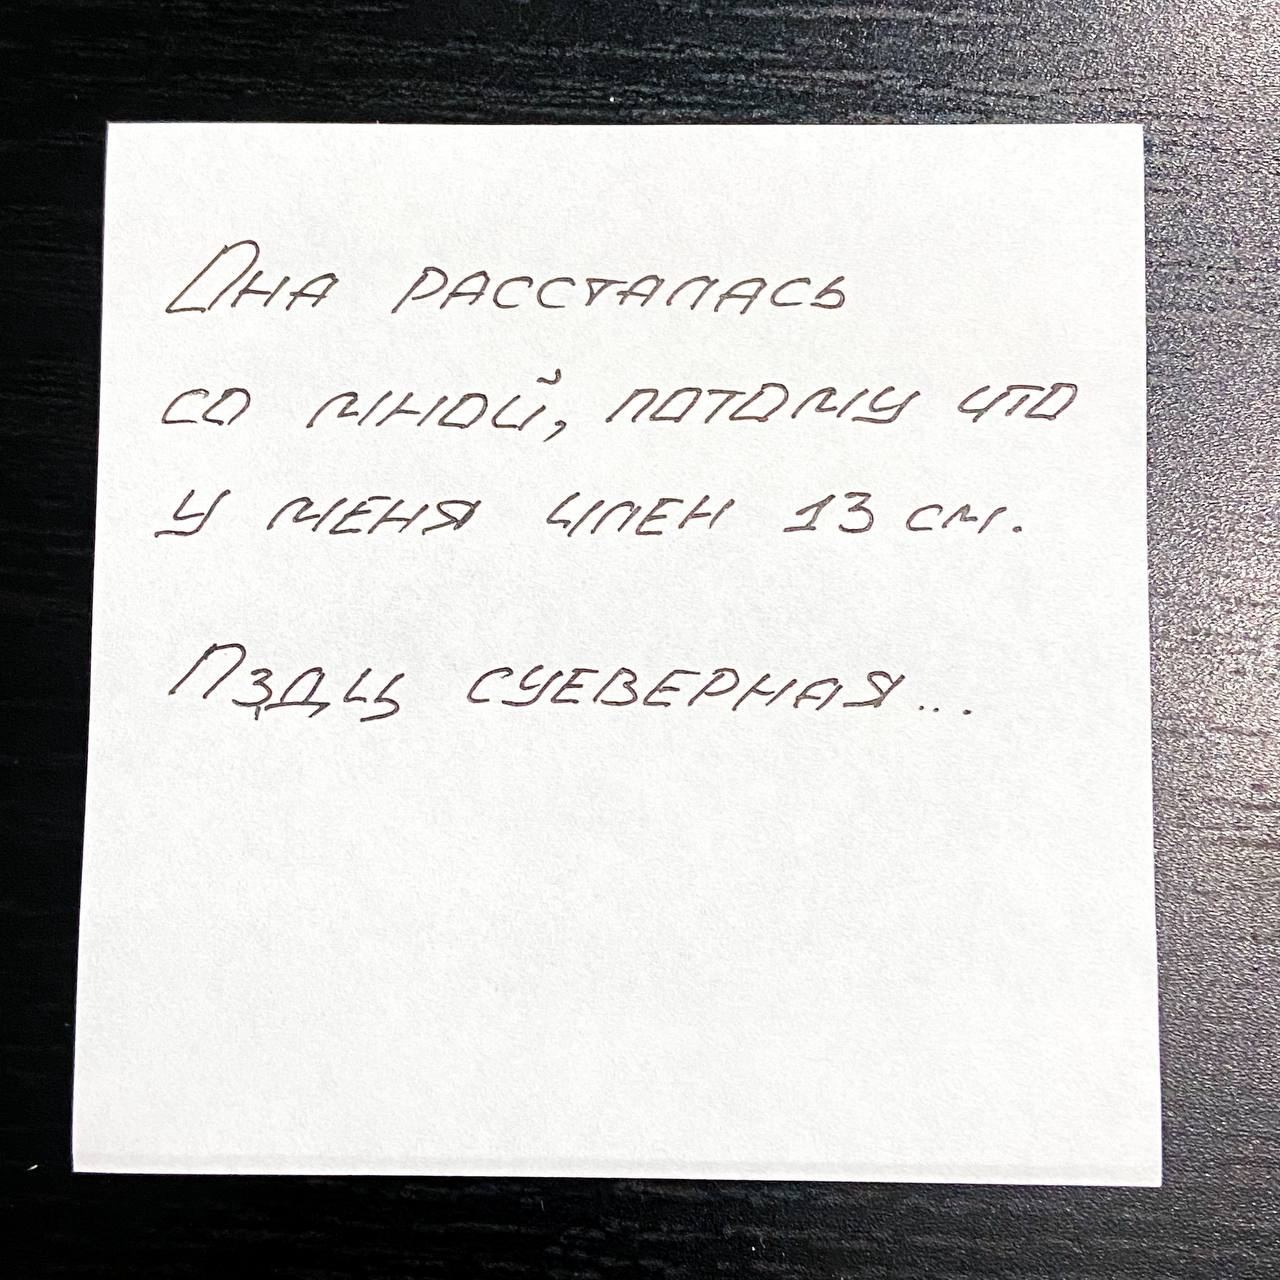 Она рассталась
со мной, потому что
у меня член 13 см.
Пздц суеверная...